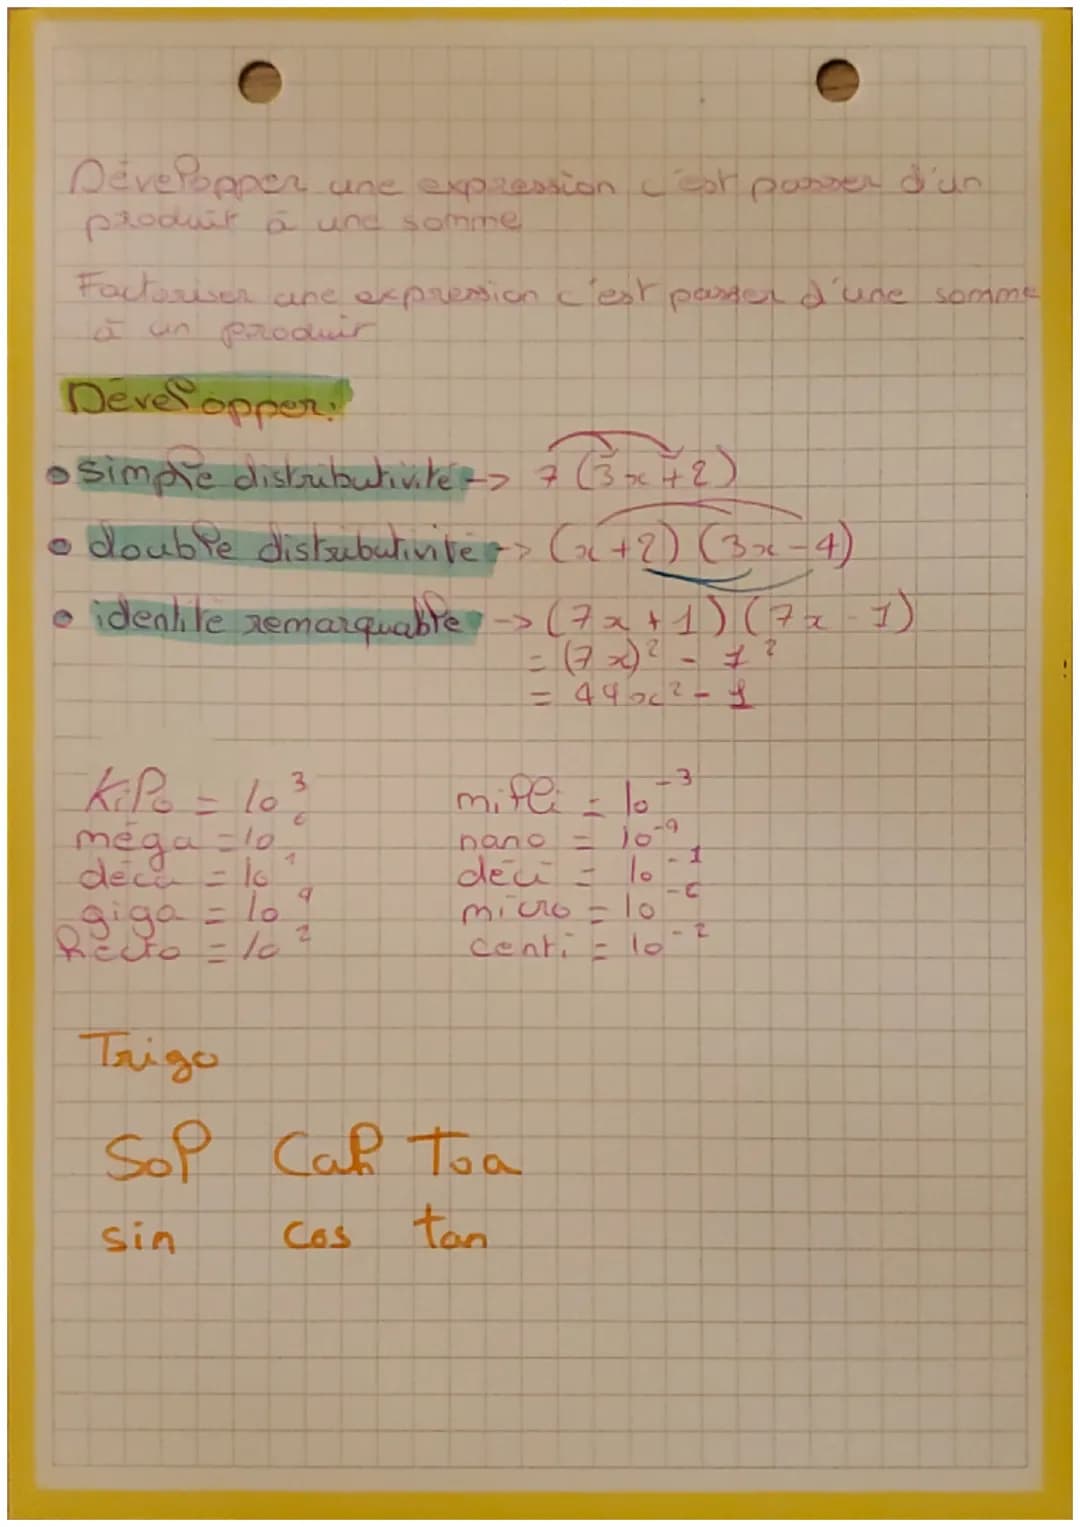 Développer une expression c'est passer d'un
produit à une somme
Factoriser une expression c'est passer d'une somme
à un produit
Développer:
• simple distributivité -> 7 (3x+2)
• double distributivité -> (x+2) (3x-4)
• identité remarquable -> (7x+1) (7x-1)
= (7x)² - 1²
= 49x² - 1
Kilo = 10³ milli = 10⁻³
méga = 10⁶ nano = 10⁻⁹
déca = 10¹ déci = 10⁻¹
giga = 10⁹ micro = 10⁻⁶
hecto = 10² centi = 10⁻²
Trigo
Soh Cah Toa
sin cos tan